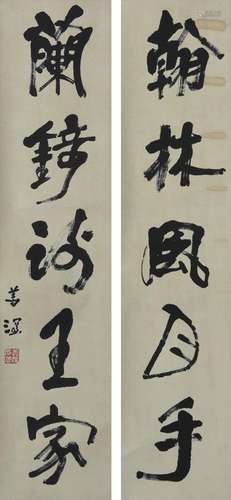 翰林風月手
蘭錡謝王家
善深